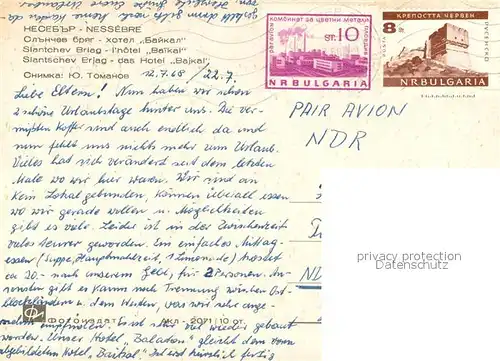 НЕСЕБЪР - NESSÈBRE
Слънчев бряг - хотел „Байкал“
Slantchev Briag - l'hôtel „Baïkal“
Slantschev Brjag - das Hotel „Bajkal“
Снимка: Ю. Томанов 12.7.68 / 22.7.
комбинат за цветни метали
ст. 10
NR BULGARIA
КРЕПОСТТА ЧЕРВЕН
8
NR BULGARIA
PAR AVION
NDR
Liebe Eltern! Nun haben wir schon
2 schöne Urlaubstage hinter uns. Die ver-
mißten Koffer sind auch endlich da und
nun fehlt uns nichts mehr zum Urlaub.
Vieles hat sich verändert seit dem letzten
Male wo wir hier waren. Wir sind an
kein Lokal gebunden, können überall essen
wo wir gerade wollen u. Möglichkeiten
gibt es viele. Leider ist in der Zwischenzeit
vieles teurer geworden. Ein einfaches Mittag-
essen (Suppe, Hauptmahlzeit, Limonade) kostet
ca 20.- nach unserem Geld, für 2 Personen. An-
sonsten gibt es kaum noch Trennung zwischen Ost-
blockländern u. dem Westen, was wir sehr ange-
nehm empfinden. Es ist sehr viel wieder gebaut
worden. Unser Hotel „Balaton“ gleicht dem vorn
abgebildeten Hotel „Baikal“. Ist erst kürzlich fertig
Фотоиздат Акл - 2071 / 10 ст.
ND
privacy protection
Datenschutz